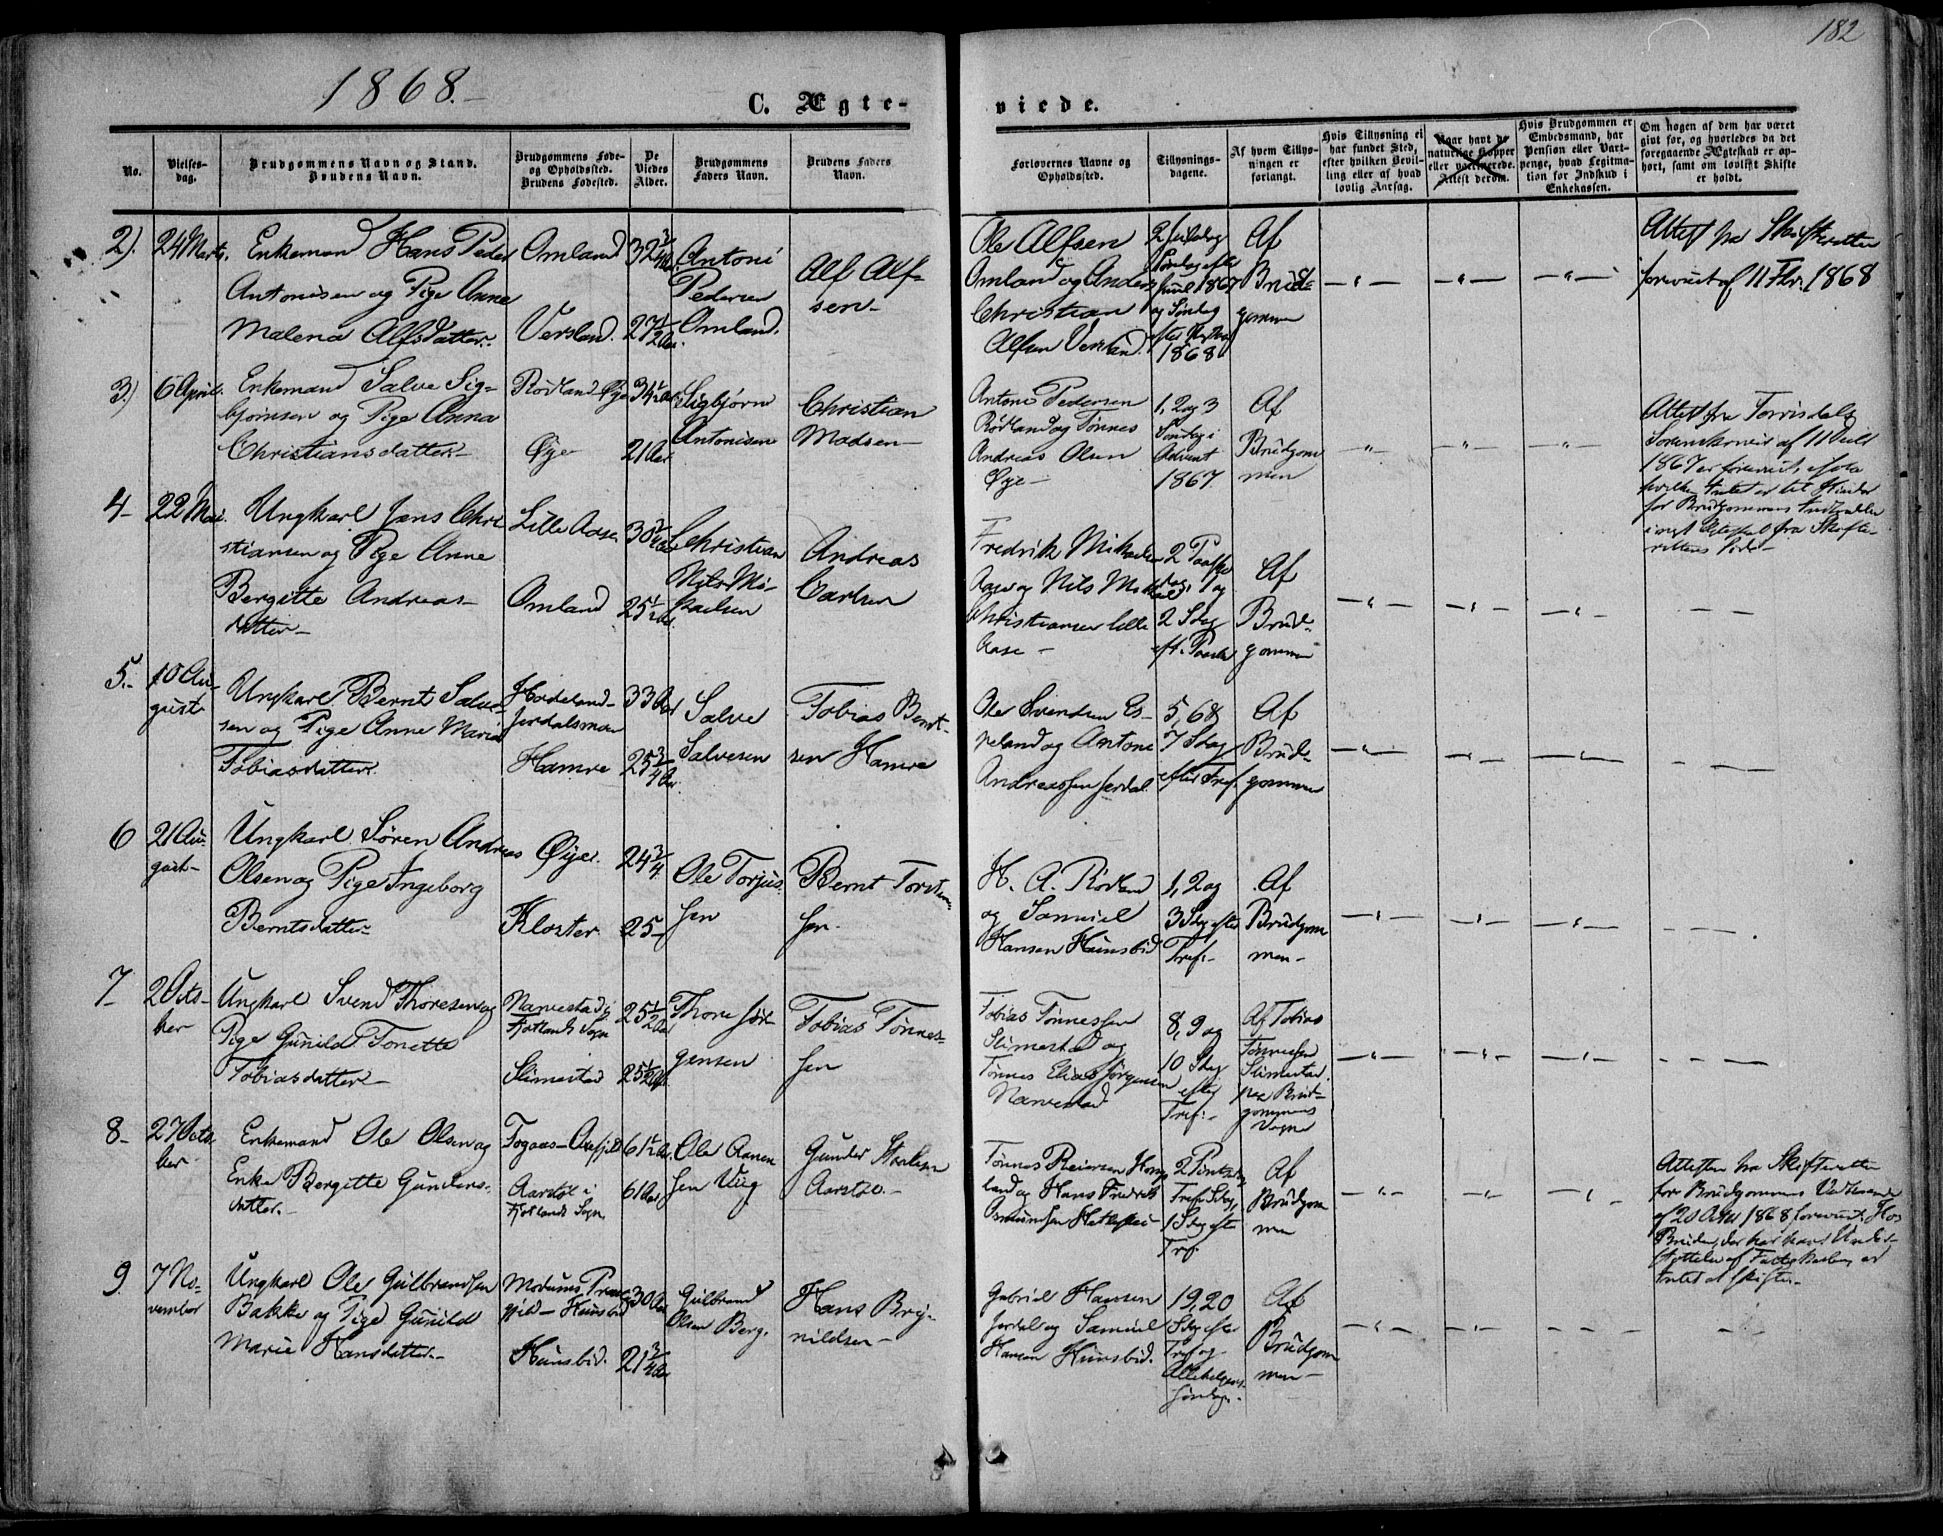 182
1868.-
C. Ægte-
viede.
No.
Vielses-
dag.
Brudgommens Navn og Stand.
Brudens Navn.
Brudgommens Føde-
og Opholdssted.
Brudens Fødested.
De
Viedes
Alder.
Brudgommens
Faders Navn.
Brudens Faders
Navn.
Forlovernes Navne og
Opholdssted.
Tillysnings-
dagene.
Af hvem Tillys-
ningen er
forlangt.
Hvis Tillysning ei
har fundet Sted,
efter hvilken Bevil-
ling eller af hvad
lovlig Aarsag.
Naar havt de
naturlige Kopper
eller vaccinerede.
Attest derom.
Hvis Brudgommen er
Embedsmand, har
Pension eller Vart-
penge, hvad Legitima-
tion for Indskud i
Enkekassen.
Om nogen af dem har været
gift før, og hvorledes da det
foregaaende Ægteskab er op-
hørt, samt om lovligt Skifte
er holdt.
2).
24 Marts.
Enkemand Hans Peder
Antonisen og Pige Anne
Malena Alfsdatter.
Omland
Versland.
32 3/4 Aar.
27 1/2 Aar.
Antoni
Pedersen
Omland.
Alf Alf-
sen-
Ole Alfsen
Omland og Anders
Christian
Alfsen Versland.
Søndag efter
Juul 1867
og Søndag
1868
Af
Brud-
gommen
Attest fra Skifteretten
forevist af 11 Fbr. 1868
3.)
6 April.
Enkemand Salve Sig-
bjørnsen og Pige Anna
Christiansdatter-
Rødland Øye
Øye
34 1/2 Aar
21 Aar
Sigbjørn
Antonisen
Christian
Madsen-
Antoni Pedersen
Rødland og Tønnes
Andreas Olsen
Øye-
1, 2 og 3
Søndag i
Advent
1867.
Af
Brudgom
men
Attest fra Torrisdals
Sorenskriveri af 11 Juli
1867 er forevist, efter
hvilken Intet er til Hinder
for Brudgommens Indtrædelse
i nyt Ægteskab fra Skifte-
rettens Side-
4-
22 Mai.
Ungkarl Jens Chri
stiansen og Pige Anne
Bergitte Andreas-
datter-
Lille Aase
Omland
30 1/2 Aar
25 1/2 Aar.
Christian
Nils Mi-
kaelsen
Andreas
Carlsen
Fredrik Mikaelsen
Aase og Nils Mikael
Christiansen lille
Aase-
2 Paaske
dag, 1 og
2 Sdag
eft. Paaske
Af
Brud-
gommen
5.-
10 Au-
gust
Ungkarl Bernt Salve
sen og Pige Anne Marie
Tobiasdatter.
Hodeland-
Jerdalsmoen
Hamre
33 Aar
25 3/4 Aar.
Salve
Salvesen
Tobias Bernt-
sen Hamre
Ole Svendsen Es-
peland og Antoni
Andreassen Jerdal.
5, 6 &
7 Sdag
efter Tref.
Af
Brud-
gommen
6
21 Au-
gust-
Ungkarl Søren Andreas
Olsen og Pige Ingeborg
Berntsdatter-
Øye.
Kloster
24 3/4.
25-
Ole Torjus-
sen
Bernt Torstens
sen-
H. A. Rødland
og Samuel
Hansen Hunsbid
1, 2 og
3 Sdag efter
Tref.-
Af
Brudgom
men-
7-
2 Octo-
ber
Ungkarl Svend Thoresen og
Pige Gunild Tonette
Tobiasdatter-
Narvestad i
Fjotlands Sogn
Slimestad
25 1/2 Aar
25 1/2 Aar.
Thore Jør-
gensen
Tobias Tønnes-
sen
Tobias Tønnessen
Slimestad og
Tønnes Elias Jørgensen
Narvestad
8, 9 og
10 Sdag
efter
Tref.-
Af Tobias
Tønnessen
Slimestad
paa Brud-
gommens
Vegne
8-
27 Octo
ber
Enkemand Ole Olsen og
Enke Bergitte Gunders-
datter.-
Fogaas-
Aarstøl i
Fjotlands Sogn
61 1/2 Aar.
61 Aar
Ole Aanen
sen Ung
Gunder
Aarstøl-
Tønnes Reiersen
land og Hans Fredrik
Asmundsen
2 Pintsedag,
Tref. Sdag,
1 Sdag efter
Tref.
Af
Brudgom
men
Attesten fra Skifteretten
for Brudgommens Vedkommende
af 20 1868 forevist. Hos
Bruden, der har havt Under-
støttelse af Fattigkassen, er
Intet at skifte.-
9.
7 No-
vember
Ungkarl Ole Gulbrandsen
Bakke og Pige Gunild
Marie Hansdatter-
Modums Præste
gjeld- Hunsbid
Hunsbid.
30 Aar
21 3/4 Aar
Gulbrand
Olsen Berg.
Hans Bryn-
nildsen-
Gabriel Hansen
Jerdal og Samuel
Hansen Hunsbid.
19, 20
Sdag efter
Tref. og
Allehelgens-
søndag.-
Af
Brudgom
men-